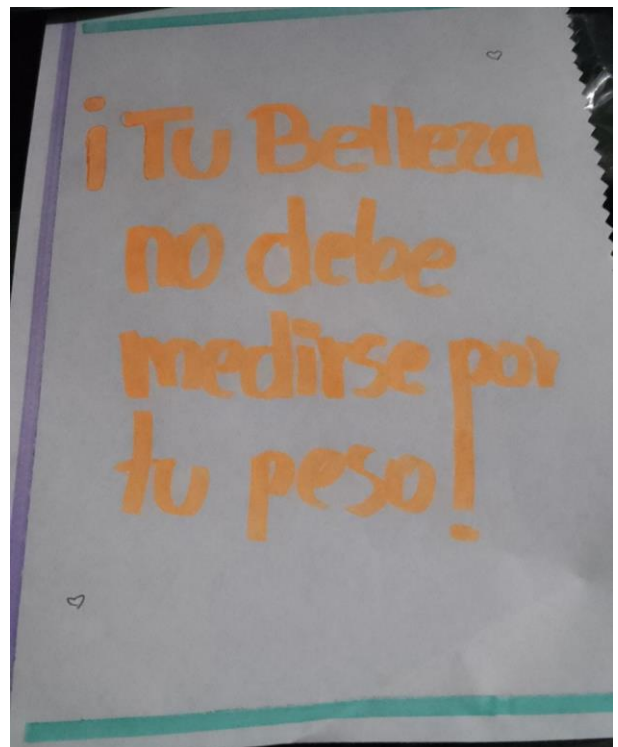 ¡Tu Belleza
no debe
medirse por
tu peso!